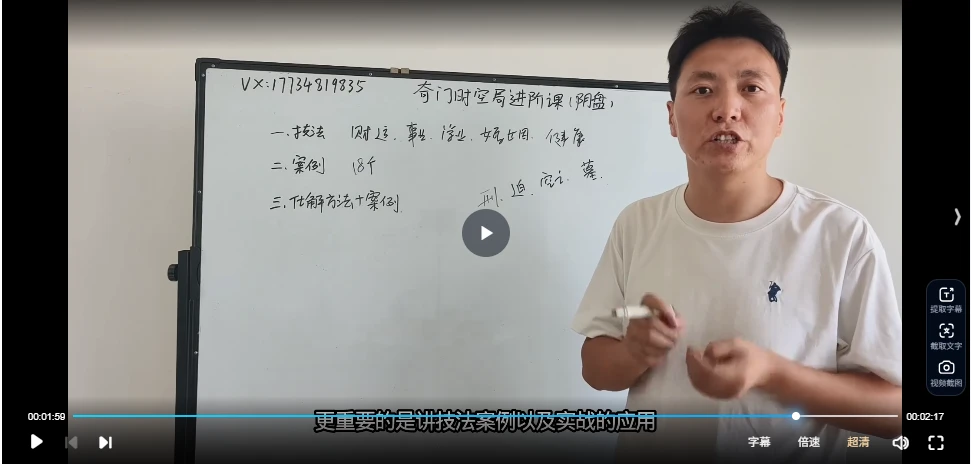 VX:17734819835
奇门时空局进阶课(阴盘)
一.技法 财运.事业.学业.婚姻.健康
二.案例 18个
三.化解方法+案例
刑.迫.空亡.墓.
提取字幕
截取文字
视频截图
00:01:59
00:02:17
更重要的是讲技法案例以及实战的应用
字幕 倍速 超清